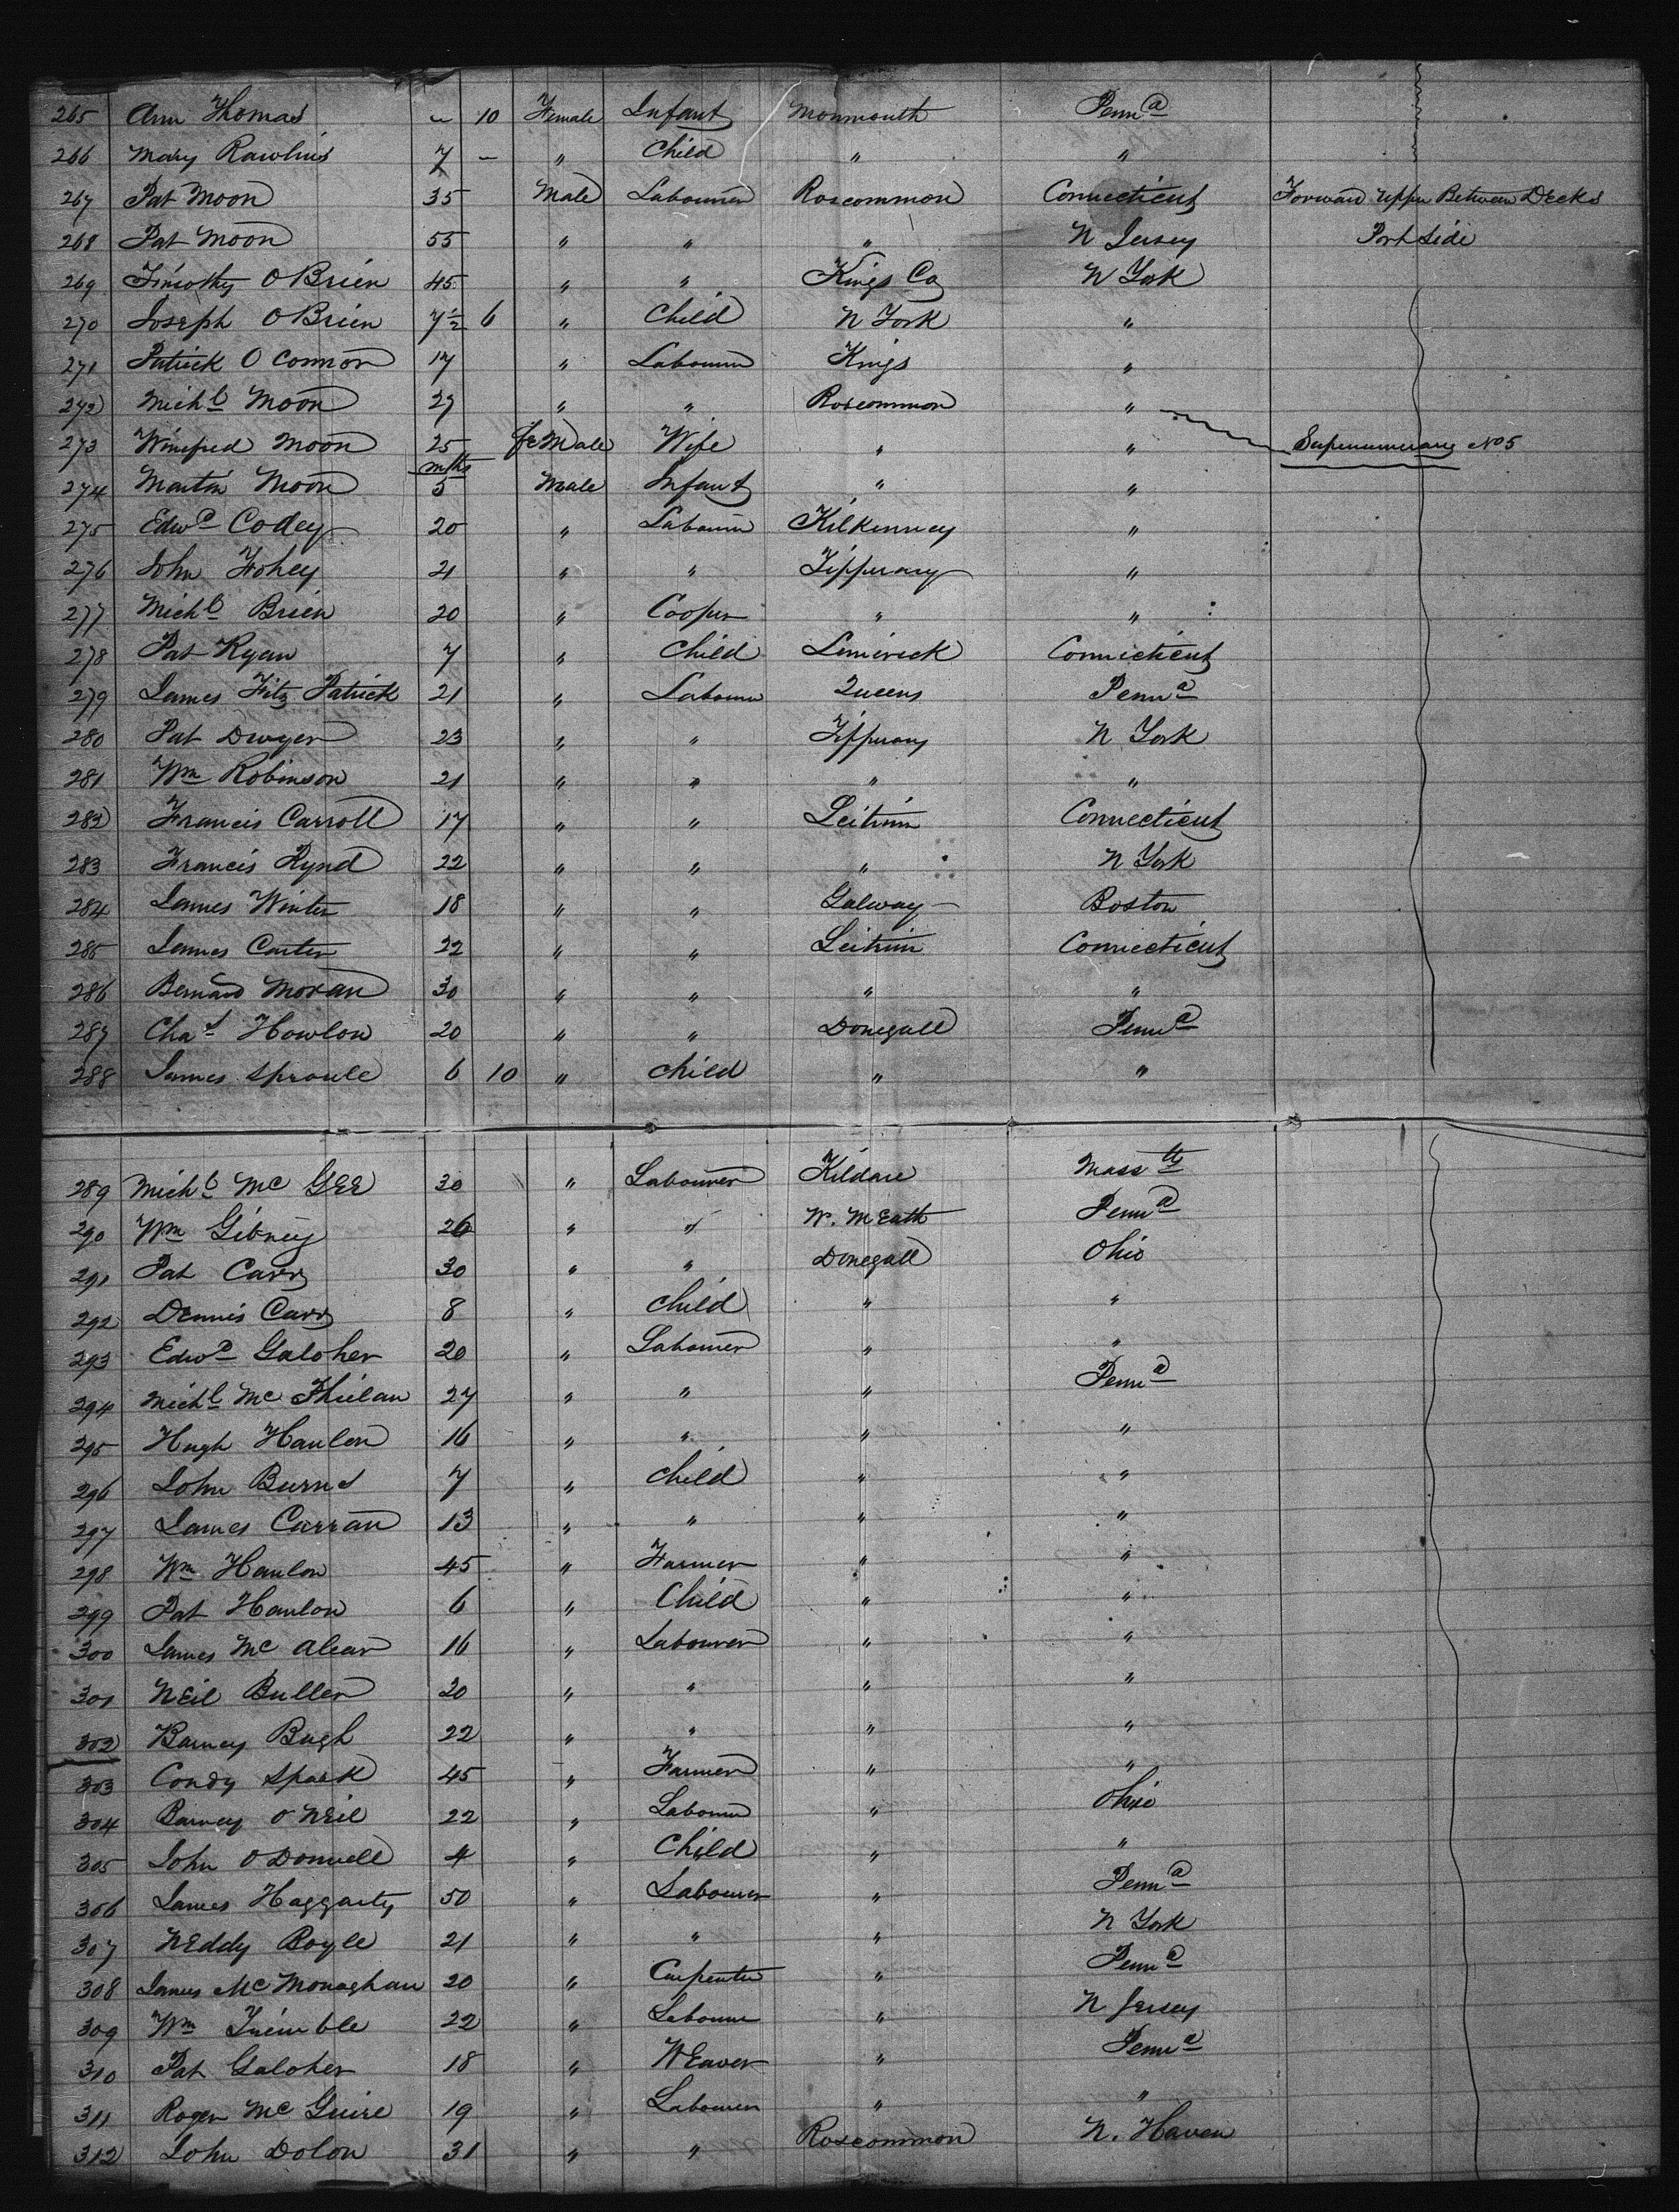 265 Ann Thomas " 10 Female Infant Monmouth Penna
266 Mary Rawlins 7 - " Child " "
267 Pat Moon 35 Male Labourer Roscommon Connecticut Forward Upper Between Decks
268 Pat Moon 55 " " " N Jersey Port Side
269 Timothy O Brien 45 " " Kings Co N York
270 Joseph O Brien 7½ 6 " Child N York "
271 Patrick O Connor 17 " Labourer Kings "
272 Michl Moon 27 " " Roscommon "
273 Winefred Moon 25 feMale Wife " " Supernumerary No 5
274 Martin Moon mths 5 Male Infant " "
275 Edwd Codey 20 " Labourer Kilkenney "
276 John Fohey 21 " " Tipperary "
277 Michl Brien 20 " Cooper " "
278 Pat Ryan 7 " Child Limerick Connecticut
279 James Fitz Patrick 21 " Labourer Queens Penna
280 Pat Dwyer 23 " " Tipperary N York
281 Wm Robinson 21 " " " "
282 Francis Carroll 17 " " Leitrim Connecticut
283 Francis Rynd 22 " " " N York
284 James Winter 18 " " Galway Boston
285 James Carter 22 " " Leitrim Connecticut
286 Bernard Moran 30 " " " "
287 Chas Howlon 20 " " Donegall Penna
288 James Sproule 6 10 " Child " "
289 Michl Mc GEE 30 " Labourer Kildare Masstts
290 Wm Gibney 26 " " W. MEath Penna
291 Pat Carr 30 " " Donegall Ohio
292 Dennis Carr 8 " Child " "
293 Edwd Galoher 20 " Labourer " "
294 Michl Mc Phielan 27 " " " Penna
295 Hugh Hanlon 16 " " " "
296 John Burns 7 " Child " "
297 James Carran 13 " " " "
298 Wm Hanlon 45 " Farmer " "
299 Pat Hanlon 6 " Child " "
300 James Mc Alear 16 " Labourer " "
301 Neil Buller 20 " " " "
302 Barney Bugh 22 " " " "
303 Condy Spark 45 " Farmer " "
304 Barney O'Neil 22 " Labourer " Ohio
305 John O Donnell 4 " Child " "
306 James Haggarty 50 " Labourer " Penna
307 Neddy Boyle 21 " " " N York
308 James McMonaghan 20 " Carpenter " Penna
309 Wm Trimble 22 " Labourer " N Jersey
310 Pat Galoher 18 " WEaver " Penna
311 Roger Mc Guire 19 " Labourer " "
312 John Dolon 31 " " Roscommon N. Haven